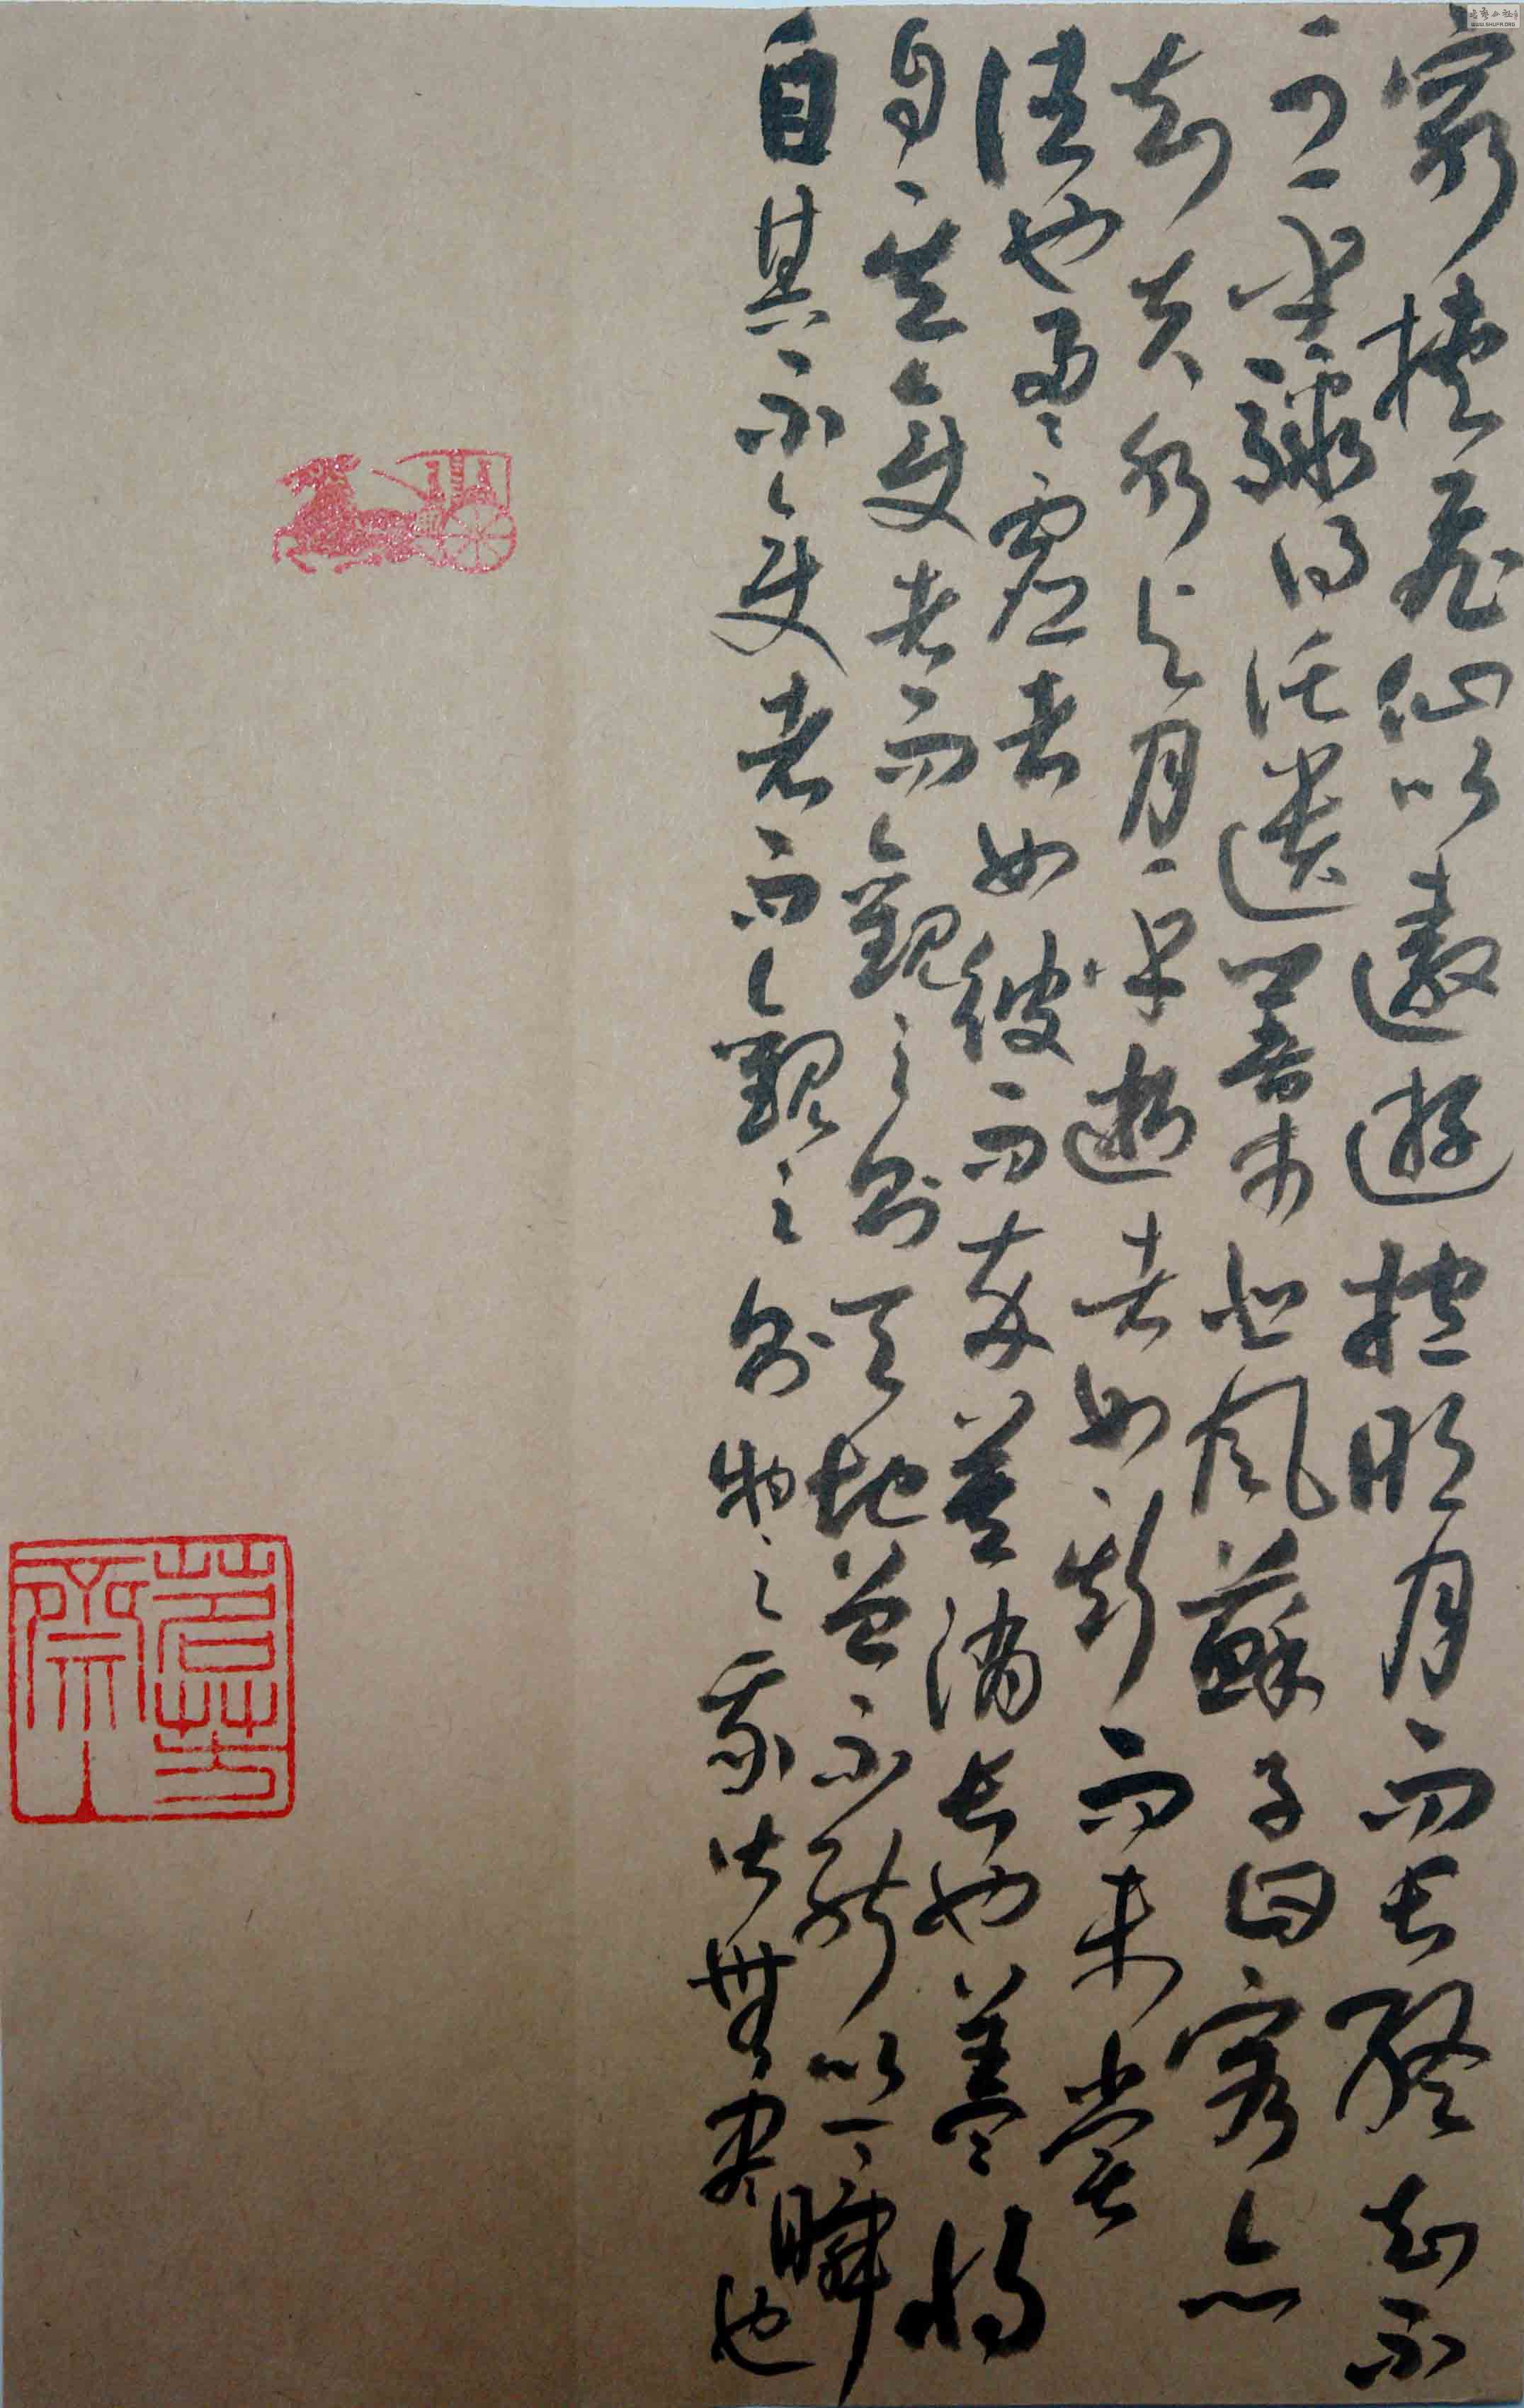 窮挾飛仙以遨遊抱明月而長終知不
可乎驟得託遺響於悲風蘇子曰客亦
知夫水與月乎逝者如斯而未嘗
往也盈虛者如彼而卒莫消長也蓋將
自其變者而觀之則天地曾不能以一瞬
自其不變者而觀之則物與我皆無盡也